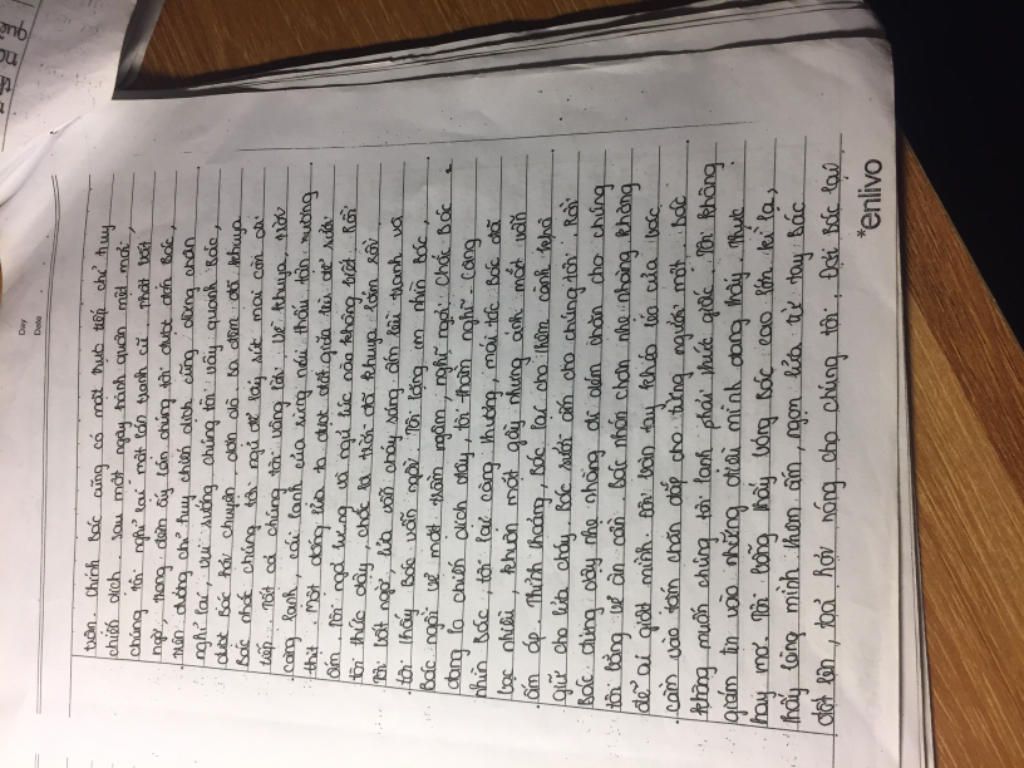 Day
Date
toàn. Chính Bác cũng có mặt trực tiếp chỉ huy
chiến dịch. Sau một ngày hành quân mệt mỏi,
chúng tôi nghỉ lại một lán tranh cũ. Thật bất
ngờ, trong đêm ấy lán chúng tôi được đón Bác,
trên đường chỉ huy chiến dịch cũng dừng chân
nghỉ lại. Vui sướng, chúng tôi vây quanh Bác,
được Bác hỏi chuyện, dặn dò. Song đêm đã khuya
Bác nhắc chúng tôi ngủ để lấy sức mai còn đi
tiếp. Tất cả chúng tôi vâng lời. Về khuya, trời
càng lạnh, cái lạnh của rừng núi thấu tận xương
thịt. Một đống lửa to được đốt giữa lều để sưởi
ấm. Tôi ngả lưng và ngủ lúc nào không biết. Rồi
tôi thức dậy, chắc là trời đã khuya lắm rồi.
Tôi bất ngờ, lửa vẫn cháy sáng đến lều tranh và
tôi thấy Bác vẫn ngồi. Tôi lặng nhìn Bác,
Bác ngồi vẻ mặt trầm ngâm, nghĩ ngợi. Chắc Bác
đang lo chiến dịch đây, tôi thầm nghĩ. Càng
nhìn Bác, tôi lại càng thương, mái tóc Bác đã
bạc nhiều, khuôn mặt gầy nhưng ánh mắt vẫn
ấm áp. Thỉnh thoảng Bác lại cho thêm cành khô
giữ cho lửa cháy. Bác sưởi ấm cho chúng tôi. Rồi
Bác đứng dậy nhẹ nhàng đi dém chăn cho chúng
tôi bằng vẻ ân cần. Bác nhón chân nhẹ nhàng không
để ai giật mình. Đôi bàn tay khéo léo của Bác
cầm vào tấm chăn đắp cho từng người một. Bác
không muốn chúng tôi lạnh phải thức giấc. Tôi không
dám tin vào những điều mình đang thấy. Thực
hay mơ. Tôi bỗng thấy bóng Bác cao lớn kì lạ,
thấy lòng mình thêm ấm, ngọn lửa từ tay Bác
đốt lên, toả hơi nóng cho chúng tôi. Đợi Bác lại
*enlivo